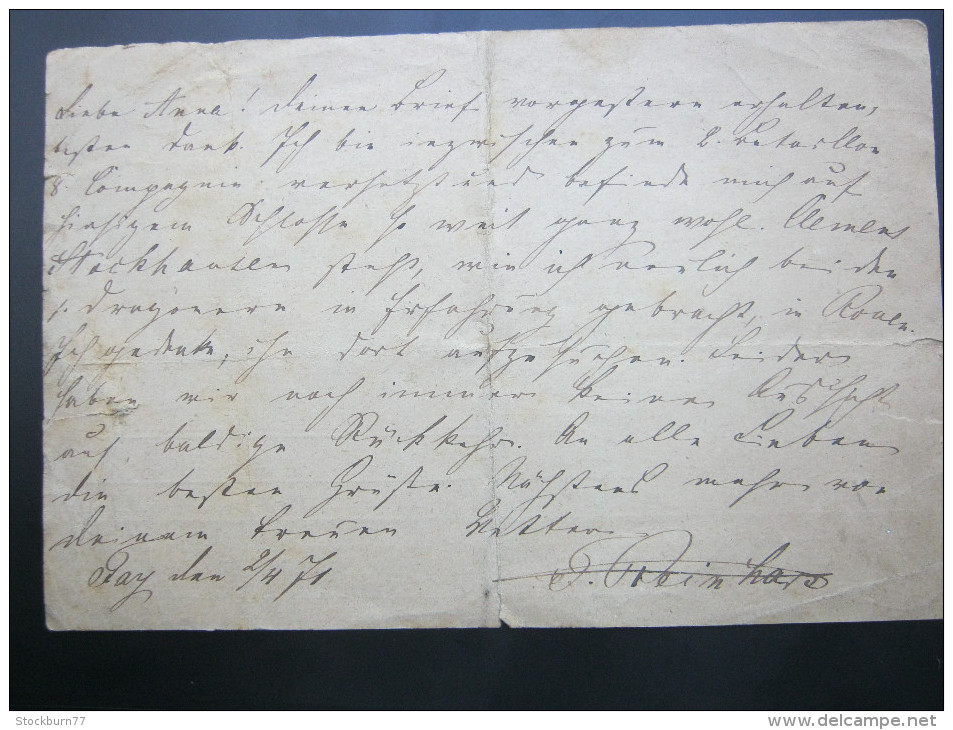 Liebe Anna! Deinen Brief vorgestern erhalten,
besten Dank. Ich bin inzwischen zum 2. Bataillon
8. Compagnie versetzt und befinde mich auf
hiesigem Schlosse so weit ganz wohl. Clemens
Stockhausen steht, wie ich neulich bei den
1. Dragonern in Erfahrung gebracht, in Rouen.
Ich gedenke, ihn dort aufzusuchen. Leider
haben wir noch immer keine Aussicht
auf baldige Rückkehr. An alle Lieben
die besten Grüße. Nächstens mehr von
Deinem treuen Vetter
den 2/4 71
Stockburn77
www.delcampe.net